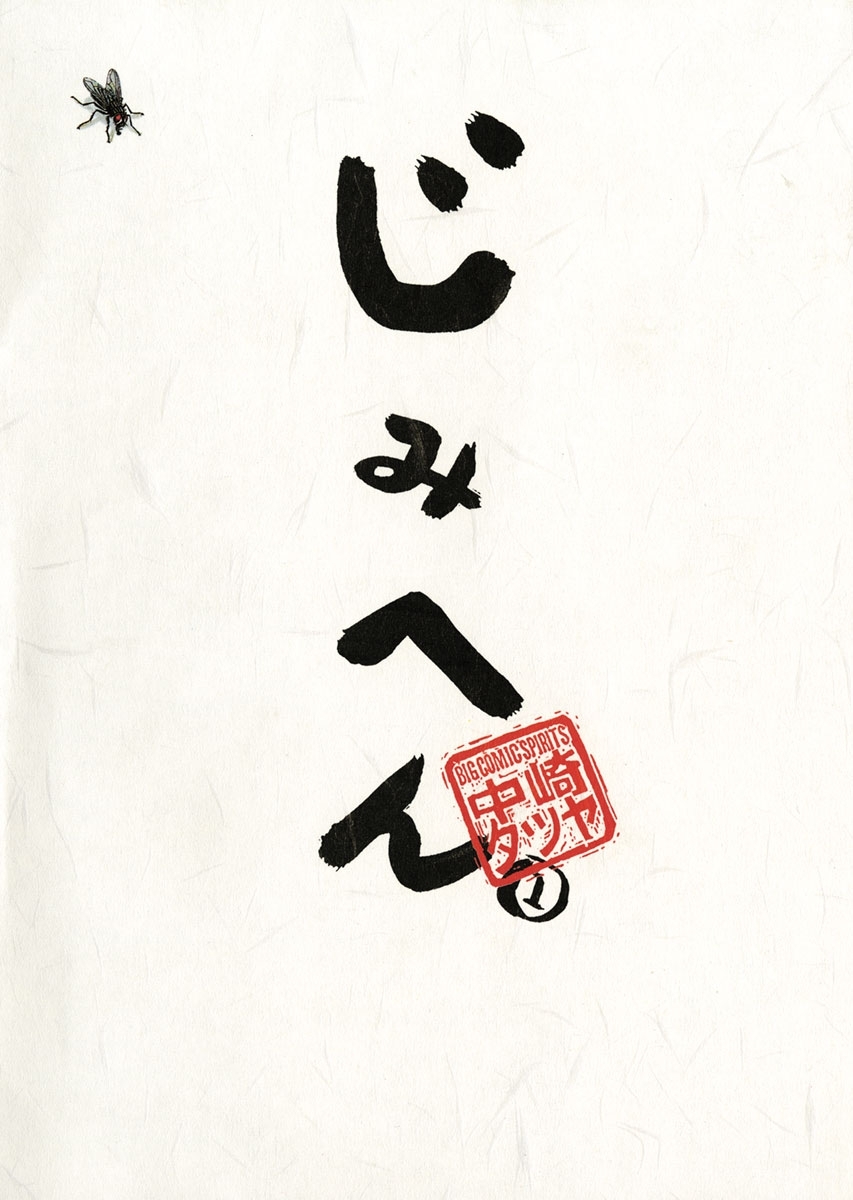 じみへん
BIG COMIC SPIRITS
中崎
タツヤ
①